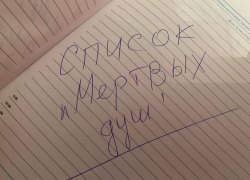 Список
"Мертвых
душ!